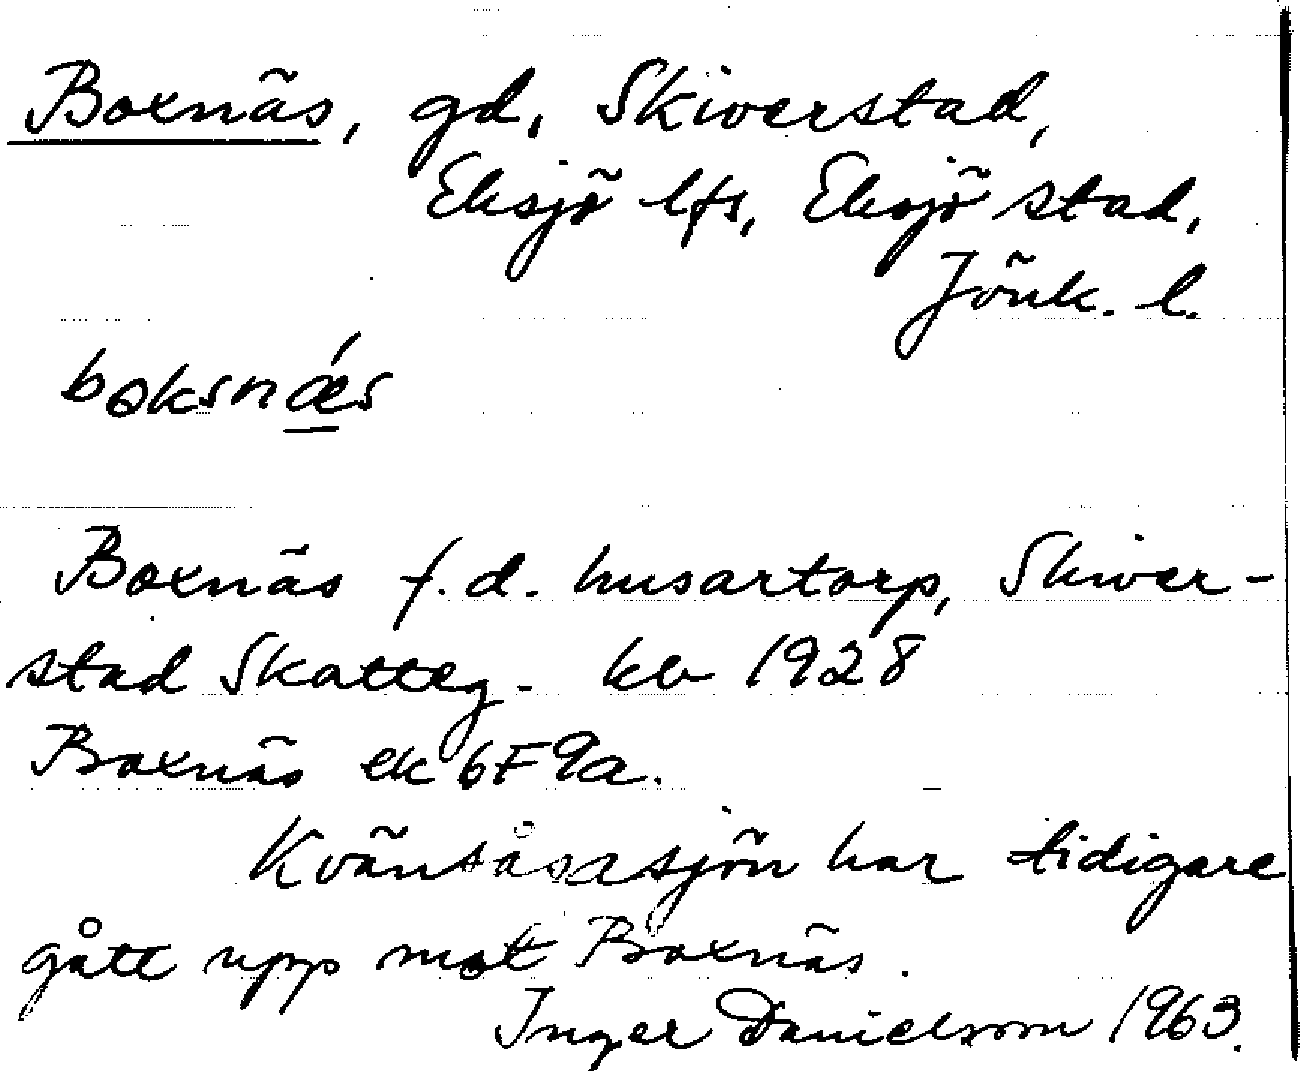 Boxnäs, gd, Skiverstad,
Eksjö lfs, Eksjö stad,
Jönk. l.
boksnǽs
Boxnäs f.d. husartorp, Skiver-
stad Skatteg. kb 1928
Boxnäs ek 6F9a.
Kvänsåsasjön har tidigare
gått upp mot Boxnäs.
Inger Danielsson 1963.